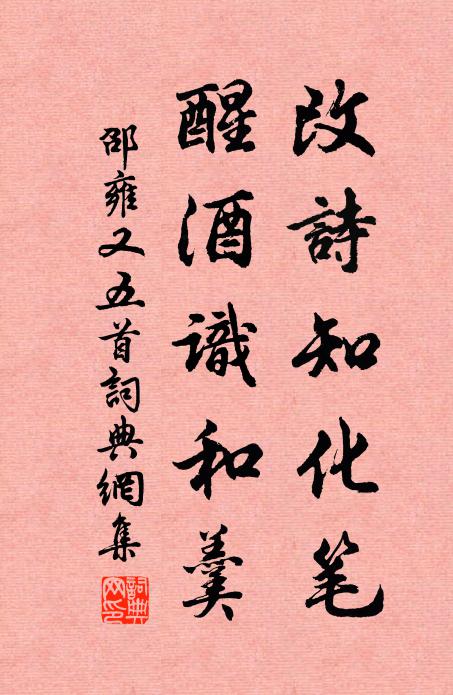 改詩知化笔
醒酒識和羹
邵雍又五首詞典網集
詞典网印